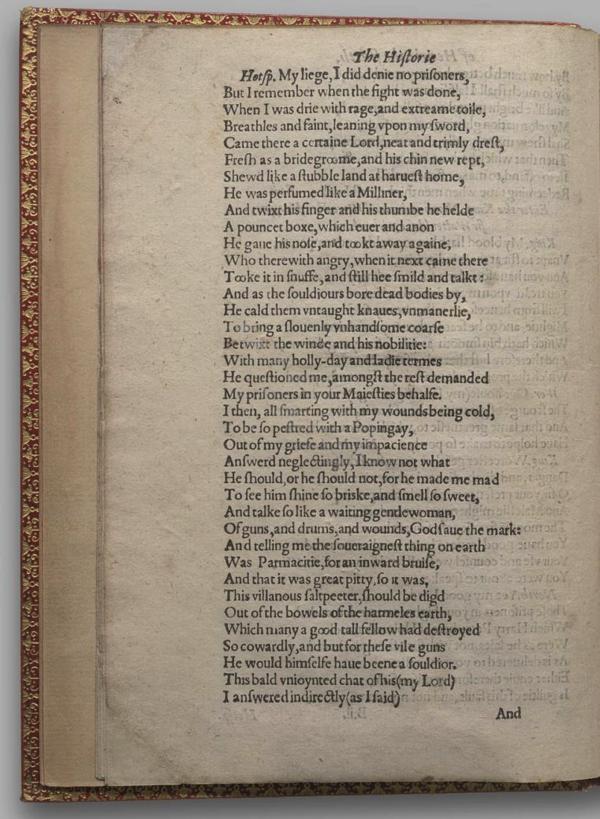 The Hiſtorie
Hotſp. My liege, I did denie no priſoners,
But I remember when the fight was done,
When I was drie with rage, and extreame toile,
Breathles and faint, leaning vpon my ſword,
Came there a certaine Lord, neat and trimly dreſt,
Freſh as a bridegroome, and his chin new rept,
Shewd like a ſtubble land at harueſt home,
He was perfumed like a Milliner,
And twixt his finger and his thumbe he helde
A pouncet boxe, which euer and anon
He gaue his noſe, and tookt away againe,
Who therewith angry, when it next came there
Tooke it in ſnuffe, and ſtill hee ſmild and talkt:
And as the ſouldiours bore dead bodies by,
He cald them vntaught knaues, vnmanerlie,
To bring a ſlouenly vnhandſome coarſe
Betwixt the winde and his nobilitie:
With many holly-day and ladie termes
He queſtioned me, amongſt the reſt demanded
My priſoners in your Maieſties behalfe.
I then, all ſmarting with my wounds being cold,
To be ſo peſtred with a Popingay,
Out of my griefe and my impacience
Anſwerd neglectingly, I know not what
He ſhould, or he ſhould not, for he made me mad
To ſee him ſhine ſo briske, and ſmell ſo ſweet,
And talke ſo like a waiting gentlewoman,
Of guns, and drums, and wounds, God ſaue the mark:
And telling me the ſoueraigneſt thing on earth
Was Parmacitie, for an inward bruiſe,
And that it was great pitty, ſo it was,
This villanous ſaltpeeter, ſhould be digd
Out of the bowels of the harmeles earth,
Which many a good tall fellow had deſtroyed
So cowardly, and but for theſe vile guns
He would himſelfe haue beene a ſouldior.
This bald vnioynted chat of his (my Lord)
I anſwered indirectly (as I ſaid)
And